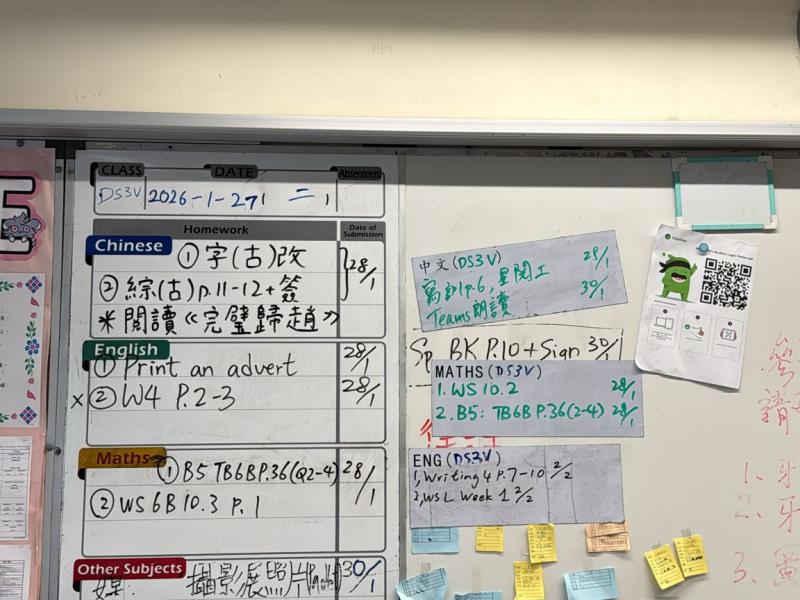 CLASS DATE Absentees
DS3V 2026-1-27 二
Homework Date of Submission
Chinese ① 字(古)改 28/1
② 綜(古)p.11-12+簽
* 閱讀《完璧歸趙》
English
① Print an advert 28/1
x ② W4 P.2-3 28/1
Maths ① B5 TB6B P.36(Q2-4) 28/1
② WS 6B 10.3 P.1
Other Subjects
攝影展照片 30/1
中文(DS3V) 28/1
p.6, 30/1
Teams朗讀
BK P.10 + Sign 30/1
MATHS (DS3V)
1. WS 10.2 28/1
2. B5: TB6B P.36(2-4) 28/1
ENG (DS3V)
1, Writing 4 P.7-10 2/2
2, WS L Week 1 2/2
1. 牙
2. 牙
3.